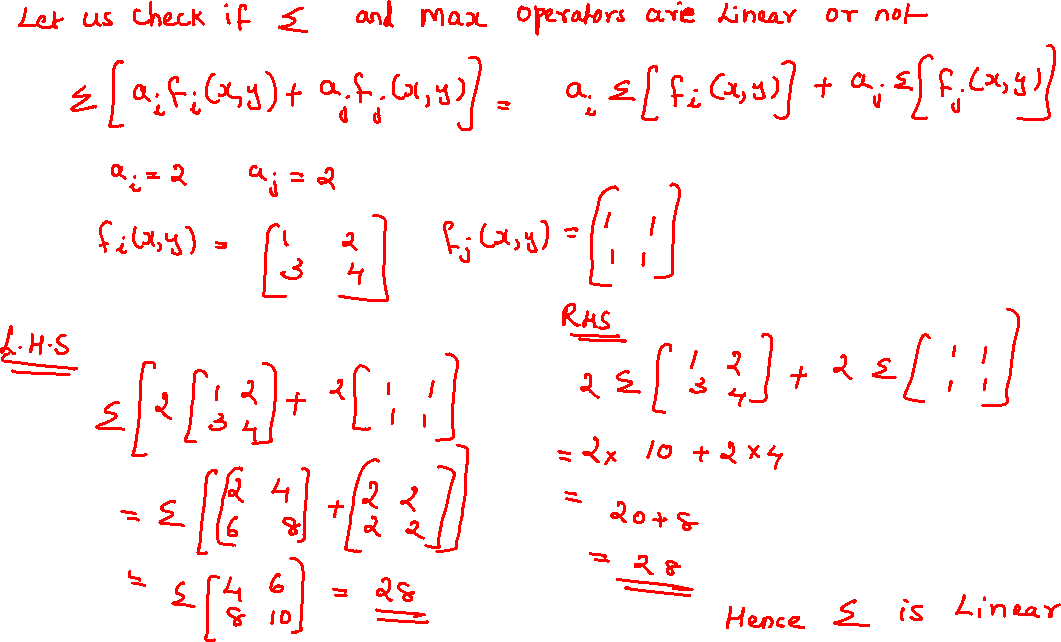 Let us check if Σ and max operators are Linear or not
Σ[aᵢfᵢ(x,y) + aⱼfⱼ(x,y)] = aᵢ Σ[fᵢ(x,y)] + aⱼ Σ[fⱼ(x,y)]
aᵢ = 2 aⱼ = 2
fᵢ(x,y) = [1 2
3 4] fⱼ(x,y) = [1 1
1 1]
L.H.S
Σ[2[1 2
3 4] + 2[1 1
1 1]]
= Σ[[2 4
6 8] + [2 2
2 2]]
= Σ[4 6
8 10] = 28
RHS
2 Σ[1 2
3 4] + 2 Σ[1 1
1 1]
= 2 x 10 + 2 x 4
= 20 + 8
= 28
Hence Σ is Linear